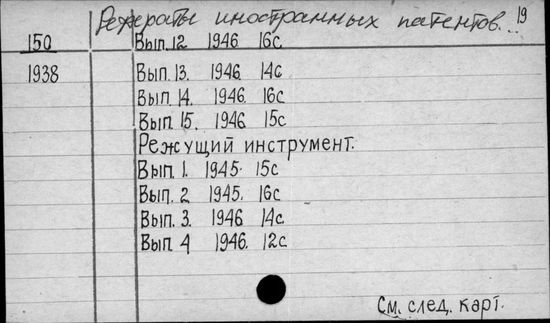 Рефераты иностранных патентов. 19
150 Вып. 12 1946 16с
1938 Вып. 13. 1946. 14с
Вып. 14. 1946. 16с
Вып. 15. 1946 15с
Режущий инструмент.
Вып. 1. 1945. 15с
Вып. 2 1945. 16с
Вып. 3. 1946 14с
Вып. 4 1946. 12с
См. след. карт.